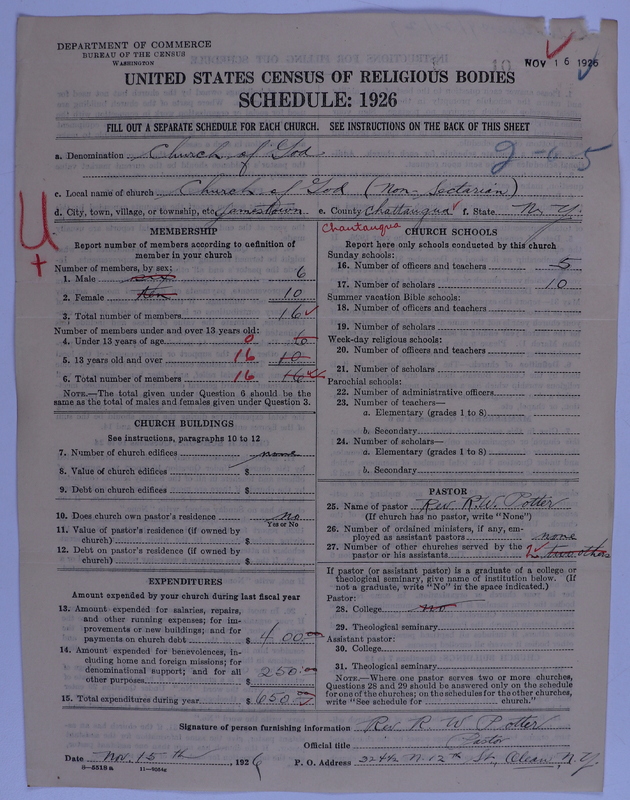 DEPARTMENT OF COMMERCE
BUREAU OF THE CENSUS
WASHINGTON
NOV 16 1926
UNITED STATES CENSUS OF RELIGIOUS BODIES
SCHEDULE: 1926
FILL OUT A SEPARATE SCHEDULE FOR EACH CHURCH. SEE INSTRUCTIONS ON THE BACK OF THIS SHEET
a. Denomination Church of God
2-65
c. Local name of church Church of God (Non-Sectarian)
d. City, town, village, or township, etc. Jamestown e. County Chattauqua f. State N. Y.
Chautauqua
U
+
MEMBERSHIP
Report number of members according to definition of
member in your church
Number of members, by sex:
1. Male six 6
2. Female ten 10
3. Total number of members 16
Number of members under and over 13 years old:
4. Under 13 years of age 0 6
5. 13 years old and over 16 10
6. Total number of members 16 16
NOTE.—The total given under Question 6 should be
same as the total of males and females given under Question 3.
CHURCH BUILDINGS
See instructions, paragraphs 10 to 12
7. Number of church edifices none
8. Value of church edifices $
9. Debt on church edifices $
10. Does church own pastor's residence no
Yes or No
11. Value of pastor's residence (if owned by
church) $
12. Debt on pastor's residence (if owned by
church) $
EXPENDITURES
Amount expended by your church during last fiscal year
13. Amount expended for salaries, repairs,
and other running expenses; for im-
provements or new buildings; and for
payments on church debt $ 400.00
14. Amount expended for benevolences, in-
cluding home and foreign missions; for
denominational support; and for all
other purposes $ 250.00
15. Total expenditures during year $ 650.00
CHURCH SCHOOLS
Report here only schools conducted by this church
Sunday schools:
16. Number of officers and teachers 5
17. Number of scholars 10
Summer vacation Bible schools:
18. Number of officers and teachers
19. Number of scholars
Week-day religious schools:
20. Number of officers and teachers
21. Number of scholars
Parochial schools:
22. Number of administrative officers
23. Number of teachers—
a. Elementary (grades 1 to 8)
b. Secondary
24. Number of scholars—
a. Elementary (grades 1 to 8)
b. Secondary
PASTOR
25. Name of pastor Rev R.W. Potter
(If church has no pastor, write "None")
26. Number of ordained ministers, if any, em-
ployed as assistant pastors none
27. Number of other churches served by the
pastor or his assistants 2 two others
If pastor (or assistant pastor) is a graduate of a college or
theological seminary, give name of institution below. (If
not a graduate, write "No" in the space indicated.)
Pastor:
28. College no
29. Theological seminary
Assistant pastor:
30. College
31. Theological seminary
NOTE.—Where one pastor serves two or more churches,
Questions 28 and 29 should be answered only on the schedule
for one of the churches; on the schedules for the other churches,
write "See schedule for church."
Signature of person furnishing information Rev R W Potter
Official title Pastor
Date Nov. 15th, 1926 P. O. Address N. 12th St. Olean N.Y.
8—5518a 11—9084